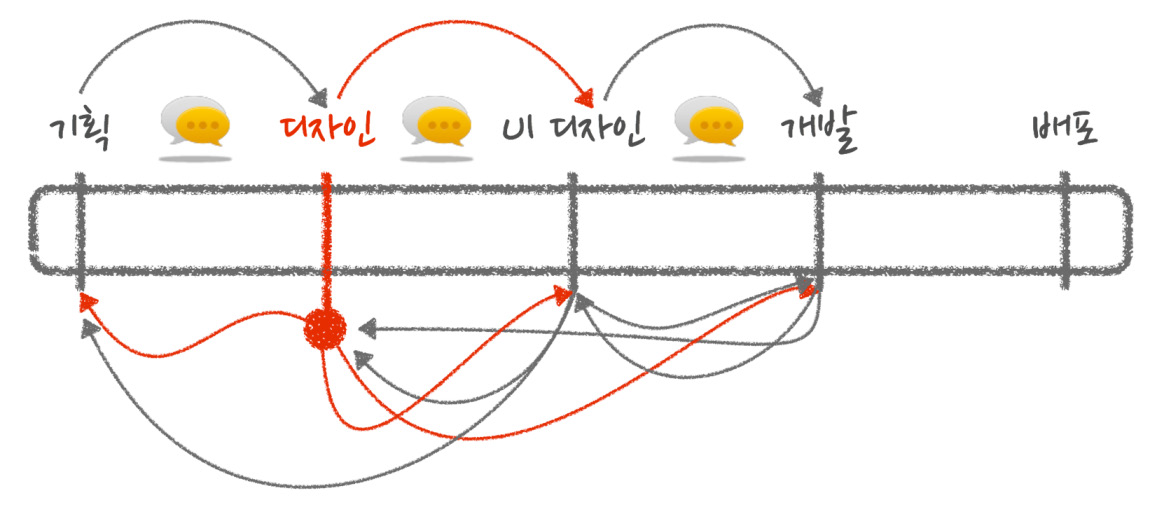 기획 디자인 UI 디자인 개발 배포